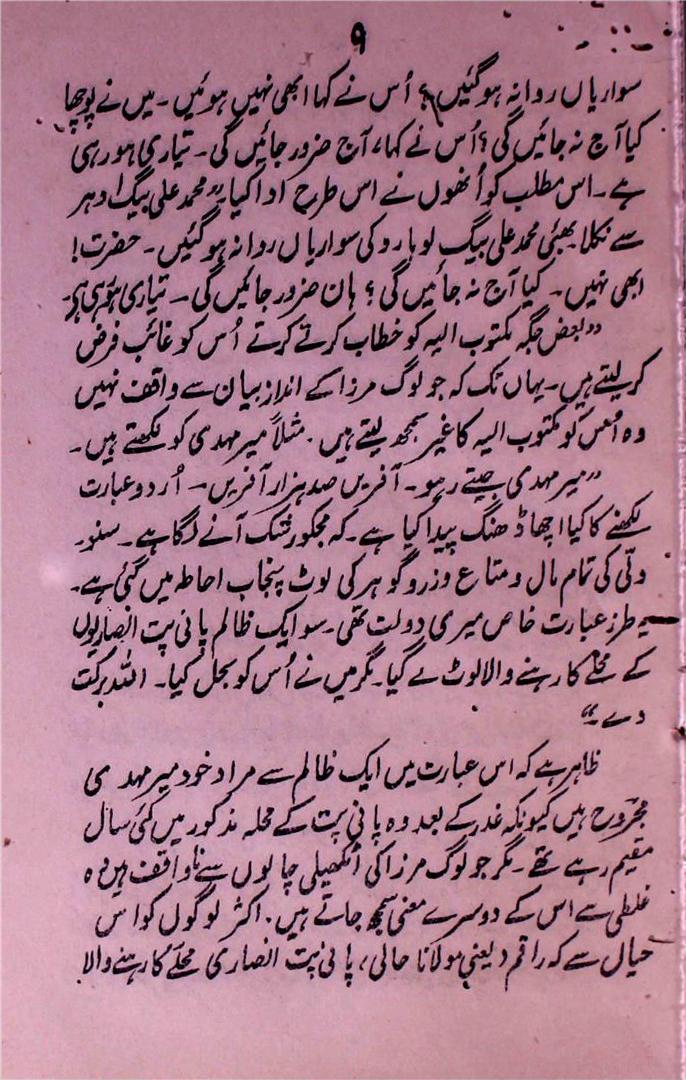 ۹
سواریاں روانہ ہوگئیں؟ اُس نے کہا ابھی نہیں ہوئیں۔ میں نے پوچھا
کیا آج نہ جائیں گی؟ اُس نے کہا، آج ضرور جائیں گی۔ تیاری ہورہی
ہے۔ اس مطلب کو اُنھوں نے اس طرح ادا کیا "محمد علی بیگ ادہر
سے نکلا۔ بھئی محمد علی بیگ لوہارو کی سواریاں روانہ ہوگئیں۔ حضرت!
ابھی نہیں۔ کیا آج نہ جائیں گی؟ ہان ضرور جائیں گی۔ تیاری ہو رہی ہی۔
"بعض جگہ مکتوب الیہ کو خطاب کرتے کرتے اُس کو غائب فرض
کرلیتے ہیں۔ یہاں تک کہ جو لوگ مرزا کے انداز بیان سے واقف نہیں
وہ اُس کو مکتوب الیہ کا غیر سمجھ لیتے ہیں۔ مثلاً میر مہدی کو لکھتے ہیں۔
"میر مہدی جیتے رہو۔ آفریں صد ہزار آفریں۔ اُردو عبارت
لکھنے کا کیا اچھا ڈھنگ پیدا کیا ہے۔ کہ مجکو رشک آنے لگا ہے۔ سنو۔
دلّی کی تمام مال و متاع و زر و گوہر کی لوٹ پنجاب احاطہ میں گئی ہے۔
یہ طرز عبارت خاص میری دولت تھی۔ سو ایک ظالم پانی پت انصاریوں
کے محلے کا رہنے والا لوٹ لے گیا۔ مگر میں نے اُس کو بحل کیا۔ اللہ برکت
دے۔"
ظاہر ہے کہ اس عبارت میں ایک ظالم سے مراد خود میر مہدی
مجروح ہیں کیونکہ غدر کے بعد وہ پانی پت کے محلہ مذکور میں کئی سال
مقیم رہے تھے۔ مگر جو لوگ مرزا کی اٹکھیلی چالوں سے ناواقف ہیں وہ
غلطی سے اس کے دوسرے معنی سمجھ جاتے ہیں۔ اکثر لوگوں کو اس
خیال سے کہ راقم (یعنی مولانا حالی) پانی پت انصاری محلے کا رہنے والا